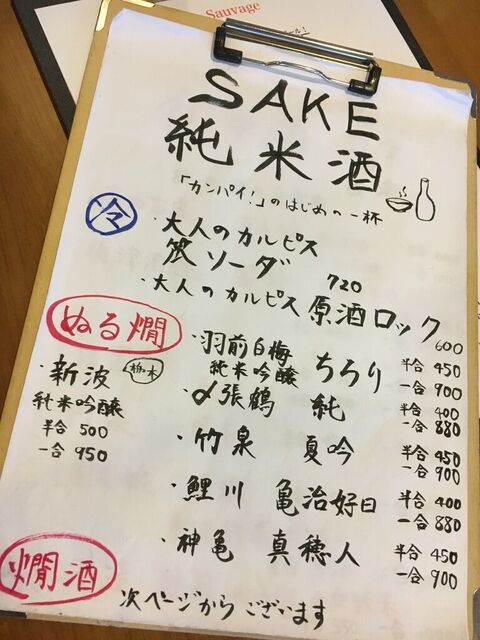 Sauvage
SAKE
純米酒
「カンパイ!」のはじめの一杯
冷
・大人のカルピス
ソーダ 720
・大人のカルピス 原酒ロック 600
ぬる燗
・羽前白梅 純米吟醸 ちろり 半合 450 一合 900
・〆張鶴 純 半合 400 一合 880
・竹泉 夏吟 半合 450 一合 900
・鯉川 亀治好日 半合 400 一合 880
・神亀 真穂人 半合 450 一合 900
・新波 栃木
純米吟醸
半合 500
一合 950
燗酒
次ページから ございます